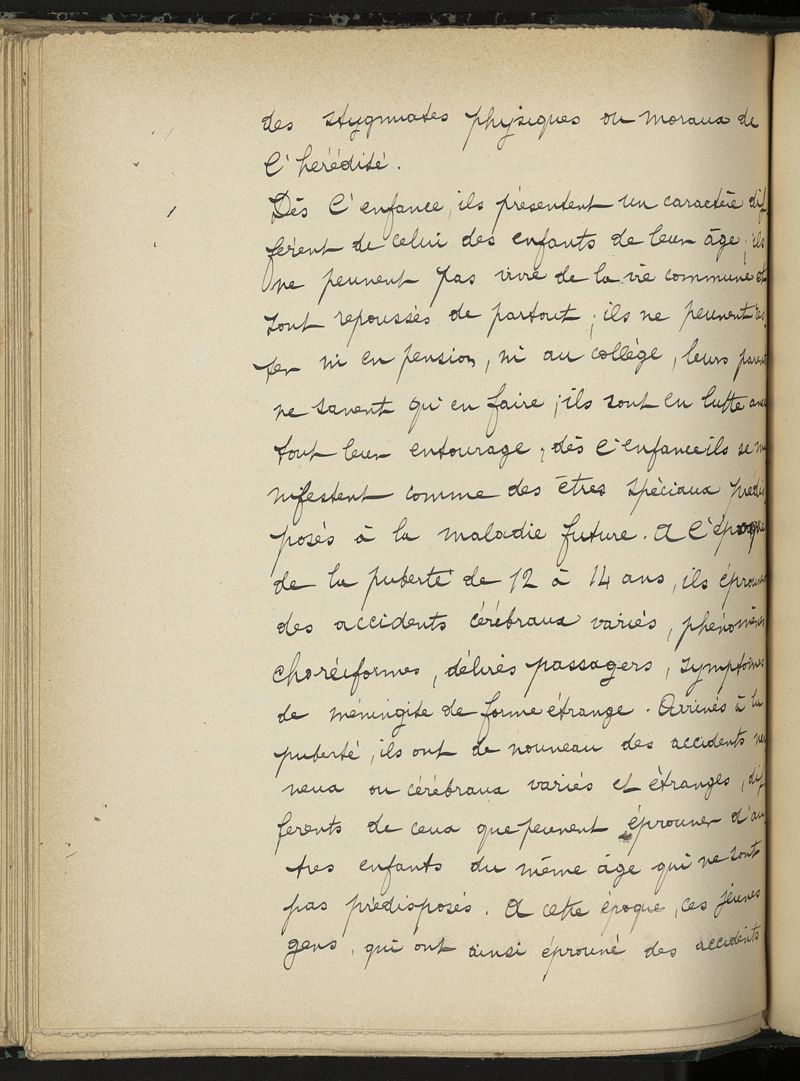 des stygmates physiques ou moraux de
l'hérédité.
Dès l'enfance, ils présentent un caractère dif
férent de celui des enfants de leur âge ; ils
ne peuvent pas vivre de la vie commune et
sont repoussés de partout ; ils ne peuvent res
ter ni en pension, ni au collège, leurs parents
ne savent qu'en faire ; ils sont en lutte avec
tout leur entourage, dès l'enfance ils se ma
nifestent comme des êtres spéciaux prédis
posés à la maladie future. A l'époque
de la puberté de 12 à 14 ans, ils éprouvent
des accidents cérébraux variés, phénomènes
choréiformes, délires passagers, symptômes
de méningite de forme étrange. Arrivés à la
puberté, ils ont de nouveau des accidents ner
veux ou cérébraux variés et étranges, dif
ferents de ceux que peuvent éprouver d'au
tres enfants du même âge qui ne sont
pas prédisposés. A cette époque, ces jeunes
gens, qui ont ainsi éprouvé des accidents